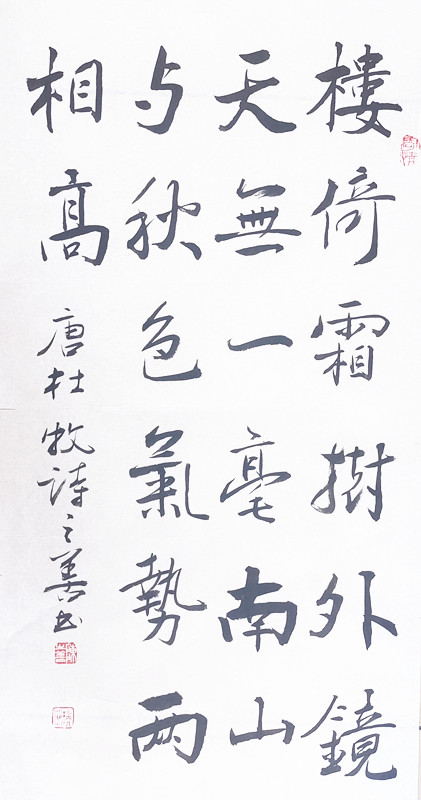 樓倚霜樹外鏡
天無一毫南山
与秋色氣勢两
相高
唐杜牧詩之善書